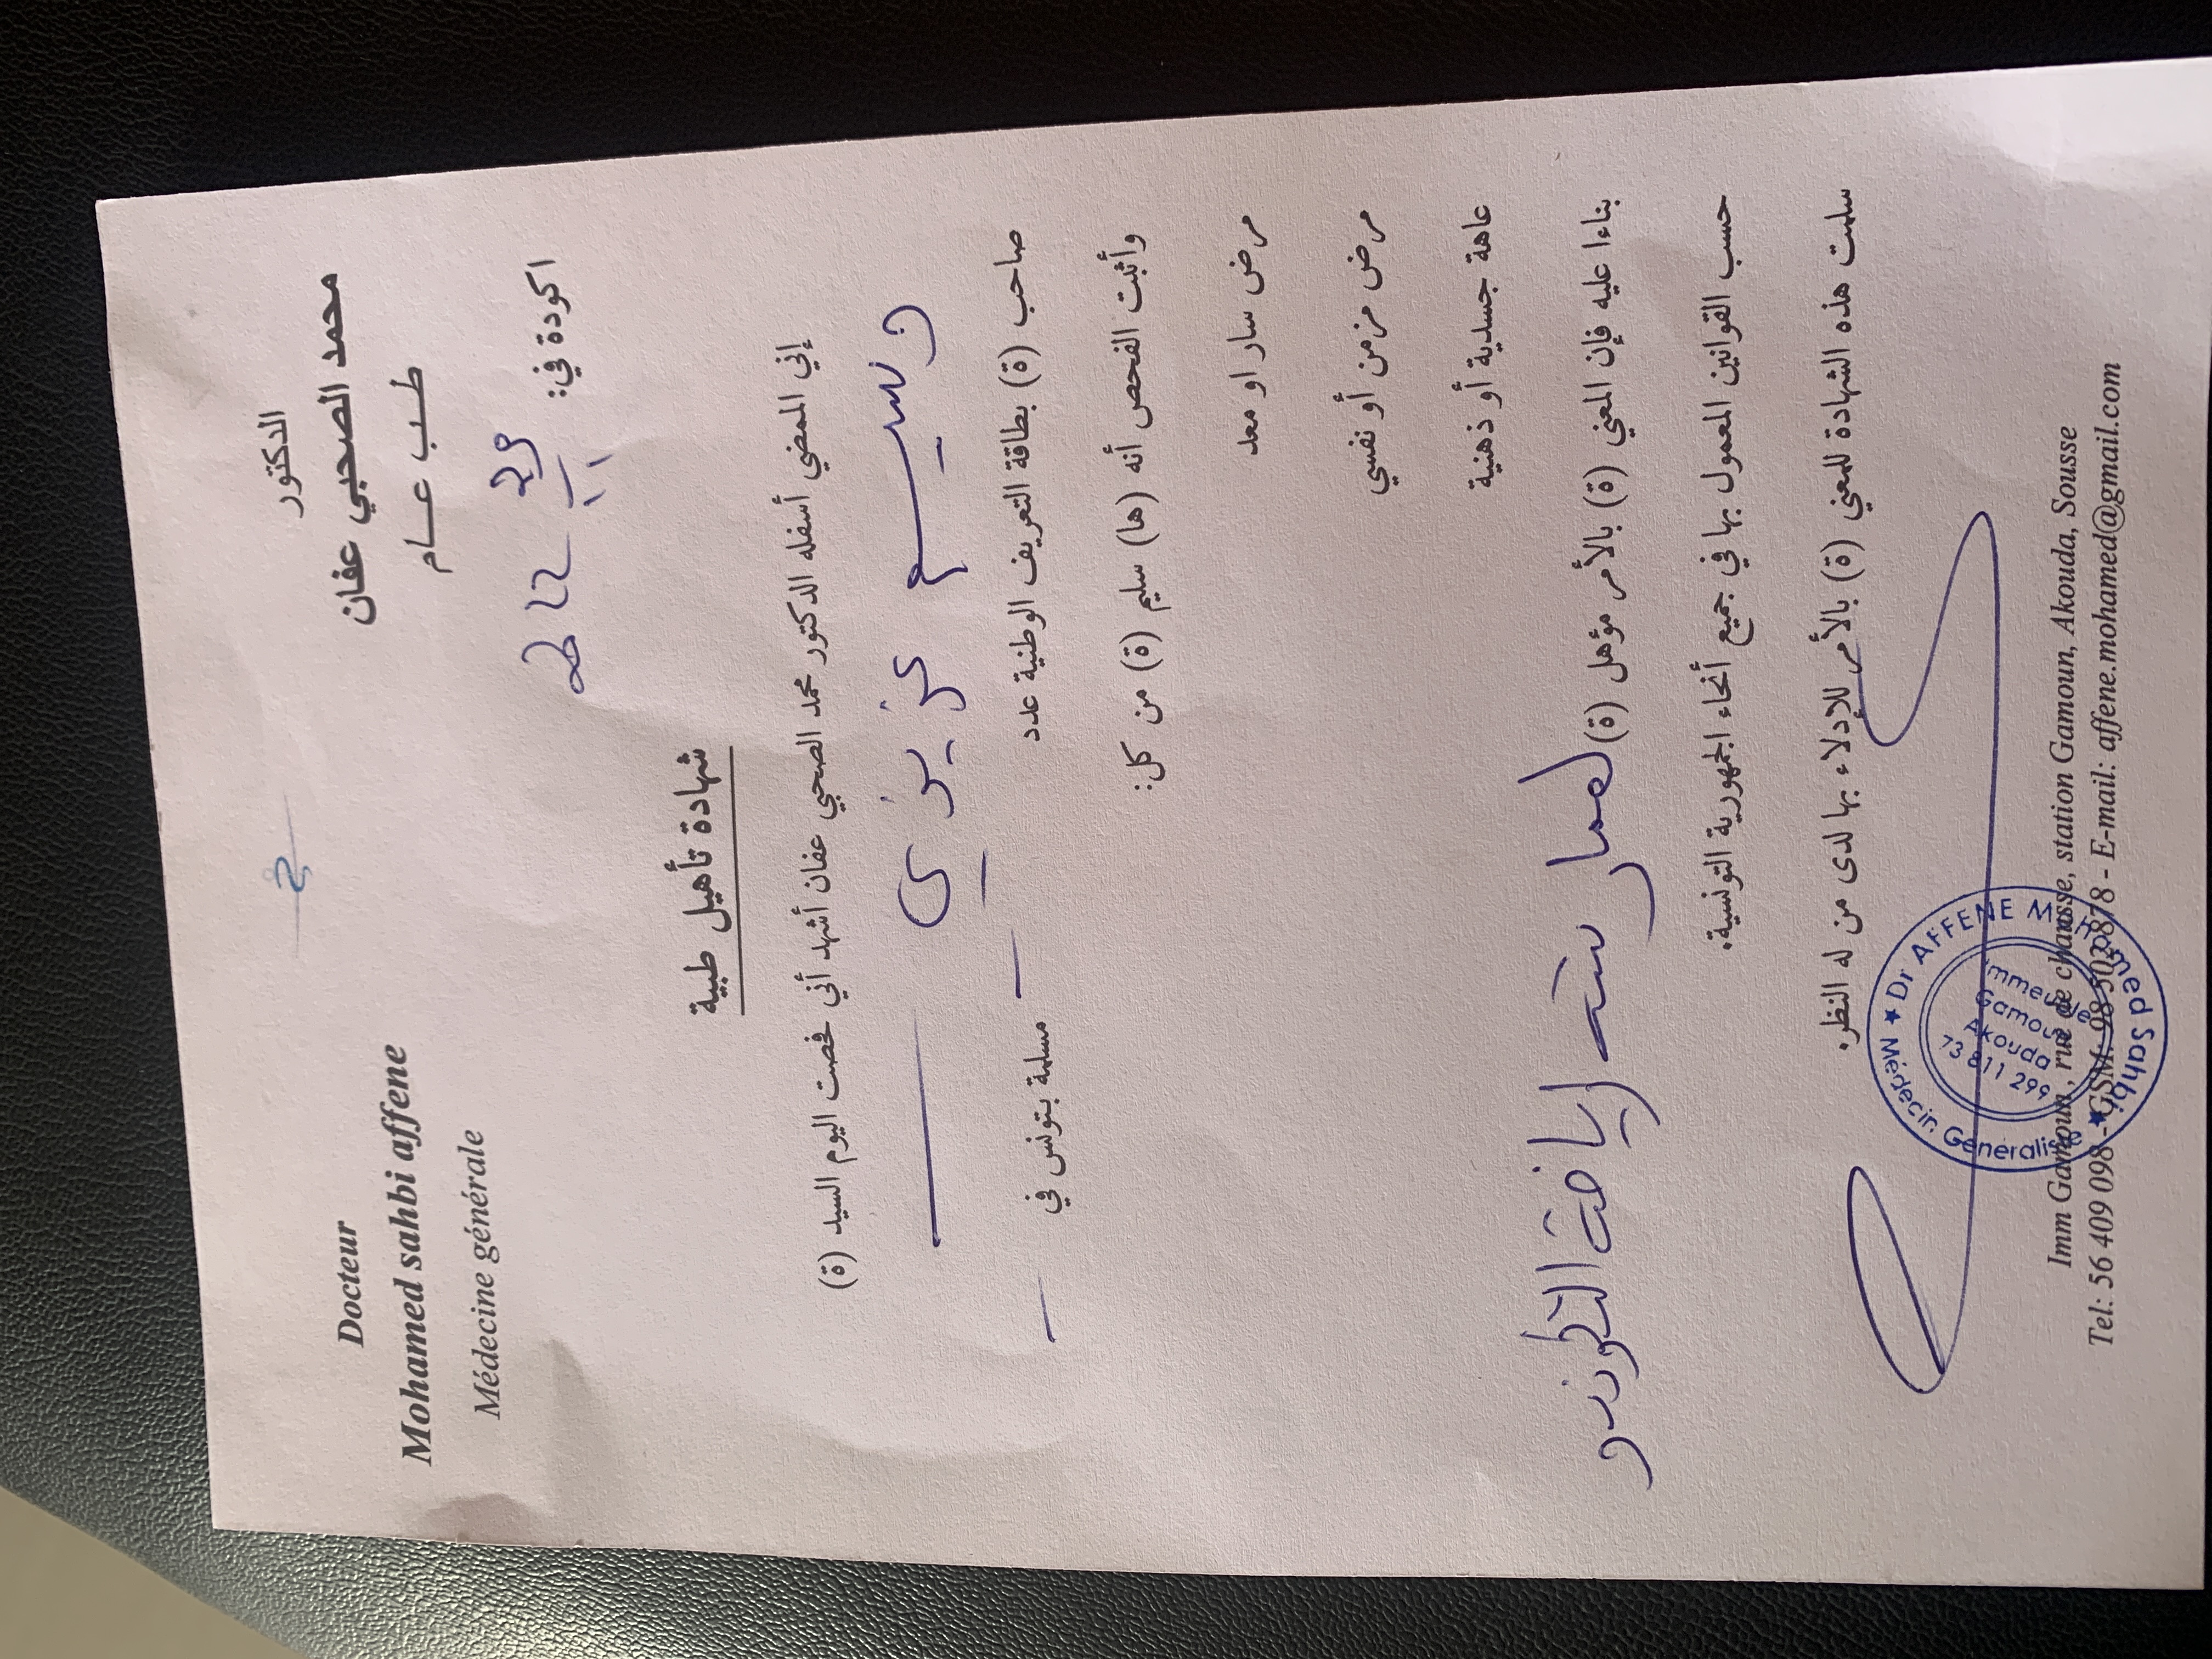 الدكتور
محمد الصحبي عفان
طب عام
Docteur
Mohamed sahbi affene
Médecine générale
اكودة في:
شهادة تأهيل طبية
إني الممضي أسفله الدكتور محمد الصحبي عفان أشهد أني فحصت اليوم السيد (ة)
وسيم عزيزي
صاحب (ة) بطاقة التعريف الوطنية عدد — مسلمة بتونس في —
وأثبت الفحص أنه (ها) سليم (ة) من كل:
مرض سار او معد
مرض مزمن أو نفسي
عاهة جسدية أو ذهنية
بناءا عليه فإن المعني (ة) بالأمر مؤهل (ة) لممارسة رياضة التكوندو
حسب القوانين المعمول بها في جميع أنحاء الجمهورية التونسية.
سلمت هذه الشهادة للمعني (ة) بالأمر للإدلاء بها لدى من له النظر.
Dr AFFENE Mohamed Sahbi ★ Médecin Généraliste ★
Immeuble
Gamoun
Akouda
73 811 299
Imm Gamoun, rue de chausse, station Gamoun, Akouda, Sousse
Tel: 56 409 098 - GSM: 98 502 878 - E-mail: affene.mohamed@gmail.com